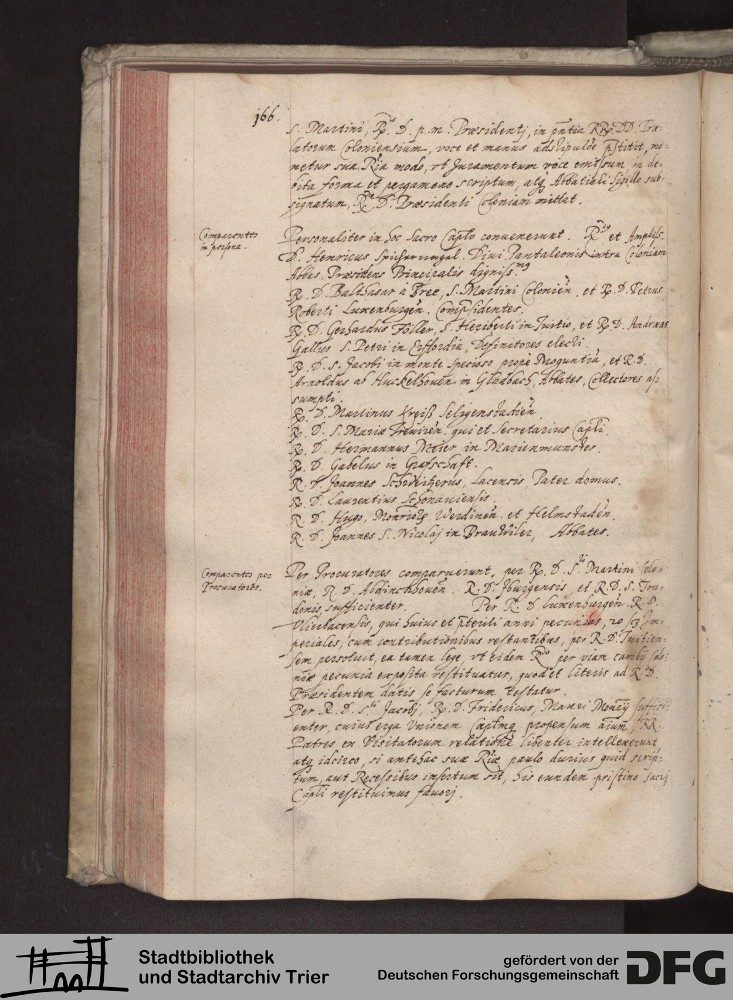 166.
S. Martini, R.do D. p. m. Præsidenti, in pntia RR. DD. Præ-
latorum Coloniensium, voce et manus adstipulõe pstitit, mo-
netur sua Rtia modo, vt Juramentum voce emissum in de-
bita forma et pergameno scriptum, atq Abbatiali Sigillo sub-
signatum, R. D. Præsidenti Coloniam mittat.
Comparentes
in persona.
Personaliter in hoc Sacro Caplo convenerunt. R. et Ampliss.
D. Henricus Spichernagel. Divi Pantaleonis intra Coloniam
Abbas. Præsidens Principalis digniss.mg
R. D. Balthasar à Bree, S. Martini Colonien, et R. D. Petrus
Roberti Luxenburgen. Compsidentes.
R. D. Gerhardus Föller, S. Heriberti in Tuitio, et R. D. Andreas
Gallus S. Petri in Erffordia, Definitores electi.
R. D. S. Jacobi in monte specioso propè Moguntiã, et R. D.
Arnoldus ab Huckelhoven in Gladbach, Abbates, Collectores as-
sumpti.
R. D. Martinus Kreiß Seligenstadien
R. D. S. Mariæ Treuiren. qui et Secretarius Capli
R. D. Hermannus Meier in Marienmunster.
R. D. Gabelus in Grafschaft.
R. D. Joannes Schweitzerus, Lacensis, Pater domus.
R. D. Laurentius Schonauiensis.
R. D. Hugo, Werdinen. et Helmstaden,
R. D. Joannes S. Nicolaj in Brauwiler, Abbates.
Comparentes per
Procuratores.
Per Procuratores comparuerunt, per R. D. S.ti Martini Colo-
niæ, R. D. Aldinckhouen. R. D. Iburgensis et R. D. S. Tru-
donis, sufficienter. Per R. D. Luxenburgen. R. D.
qui huius et pteriti anni pecunias, 20 Im-
periales, cum contributionibus restantibus, per R. D. Tuitien-
sem persoluit, ea tamen lege, vt eidem R.do per viam cambij Colo-
niæ pecunia exposita restituatur, quod et literis ad R. D.
Præsidentem datis se facturum testatur.
Per R. D. S.ti Jacobj, R. D. Fridericus, Mauri Monrij suffici-
enter, cuius erga Vnionem Caplmq propensum aium, RR.
Patres, ex Visitatorum relatione libenter intellexerunt
atq idcirco, si antehac suæ Rtiæ paulo durius quid scrip-
tum, aut Recessibus insertum sit, his eundem pristino sacrj
Capli restituimus fauorj.
Stadtbibliothek
und Stadtarchiv Trier
gefördert von der
Deutschen Forschungsgemeinschaft
DFG